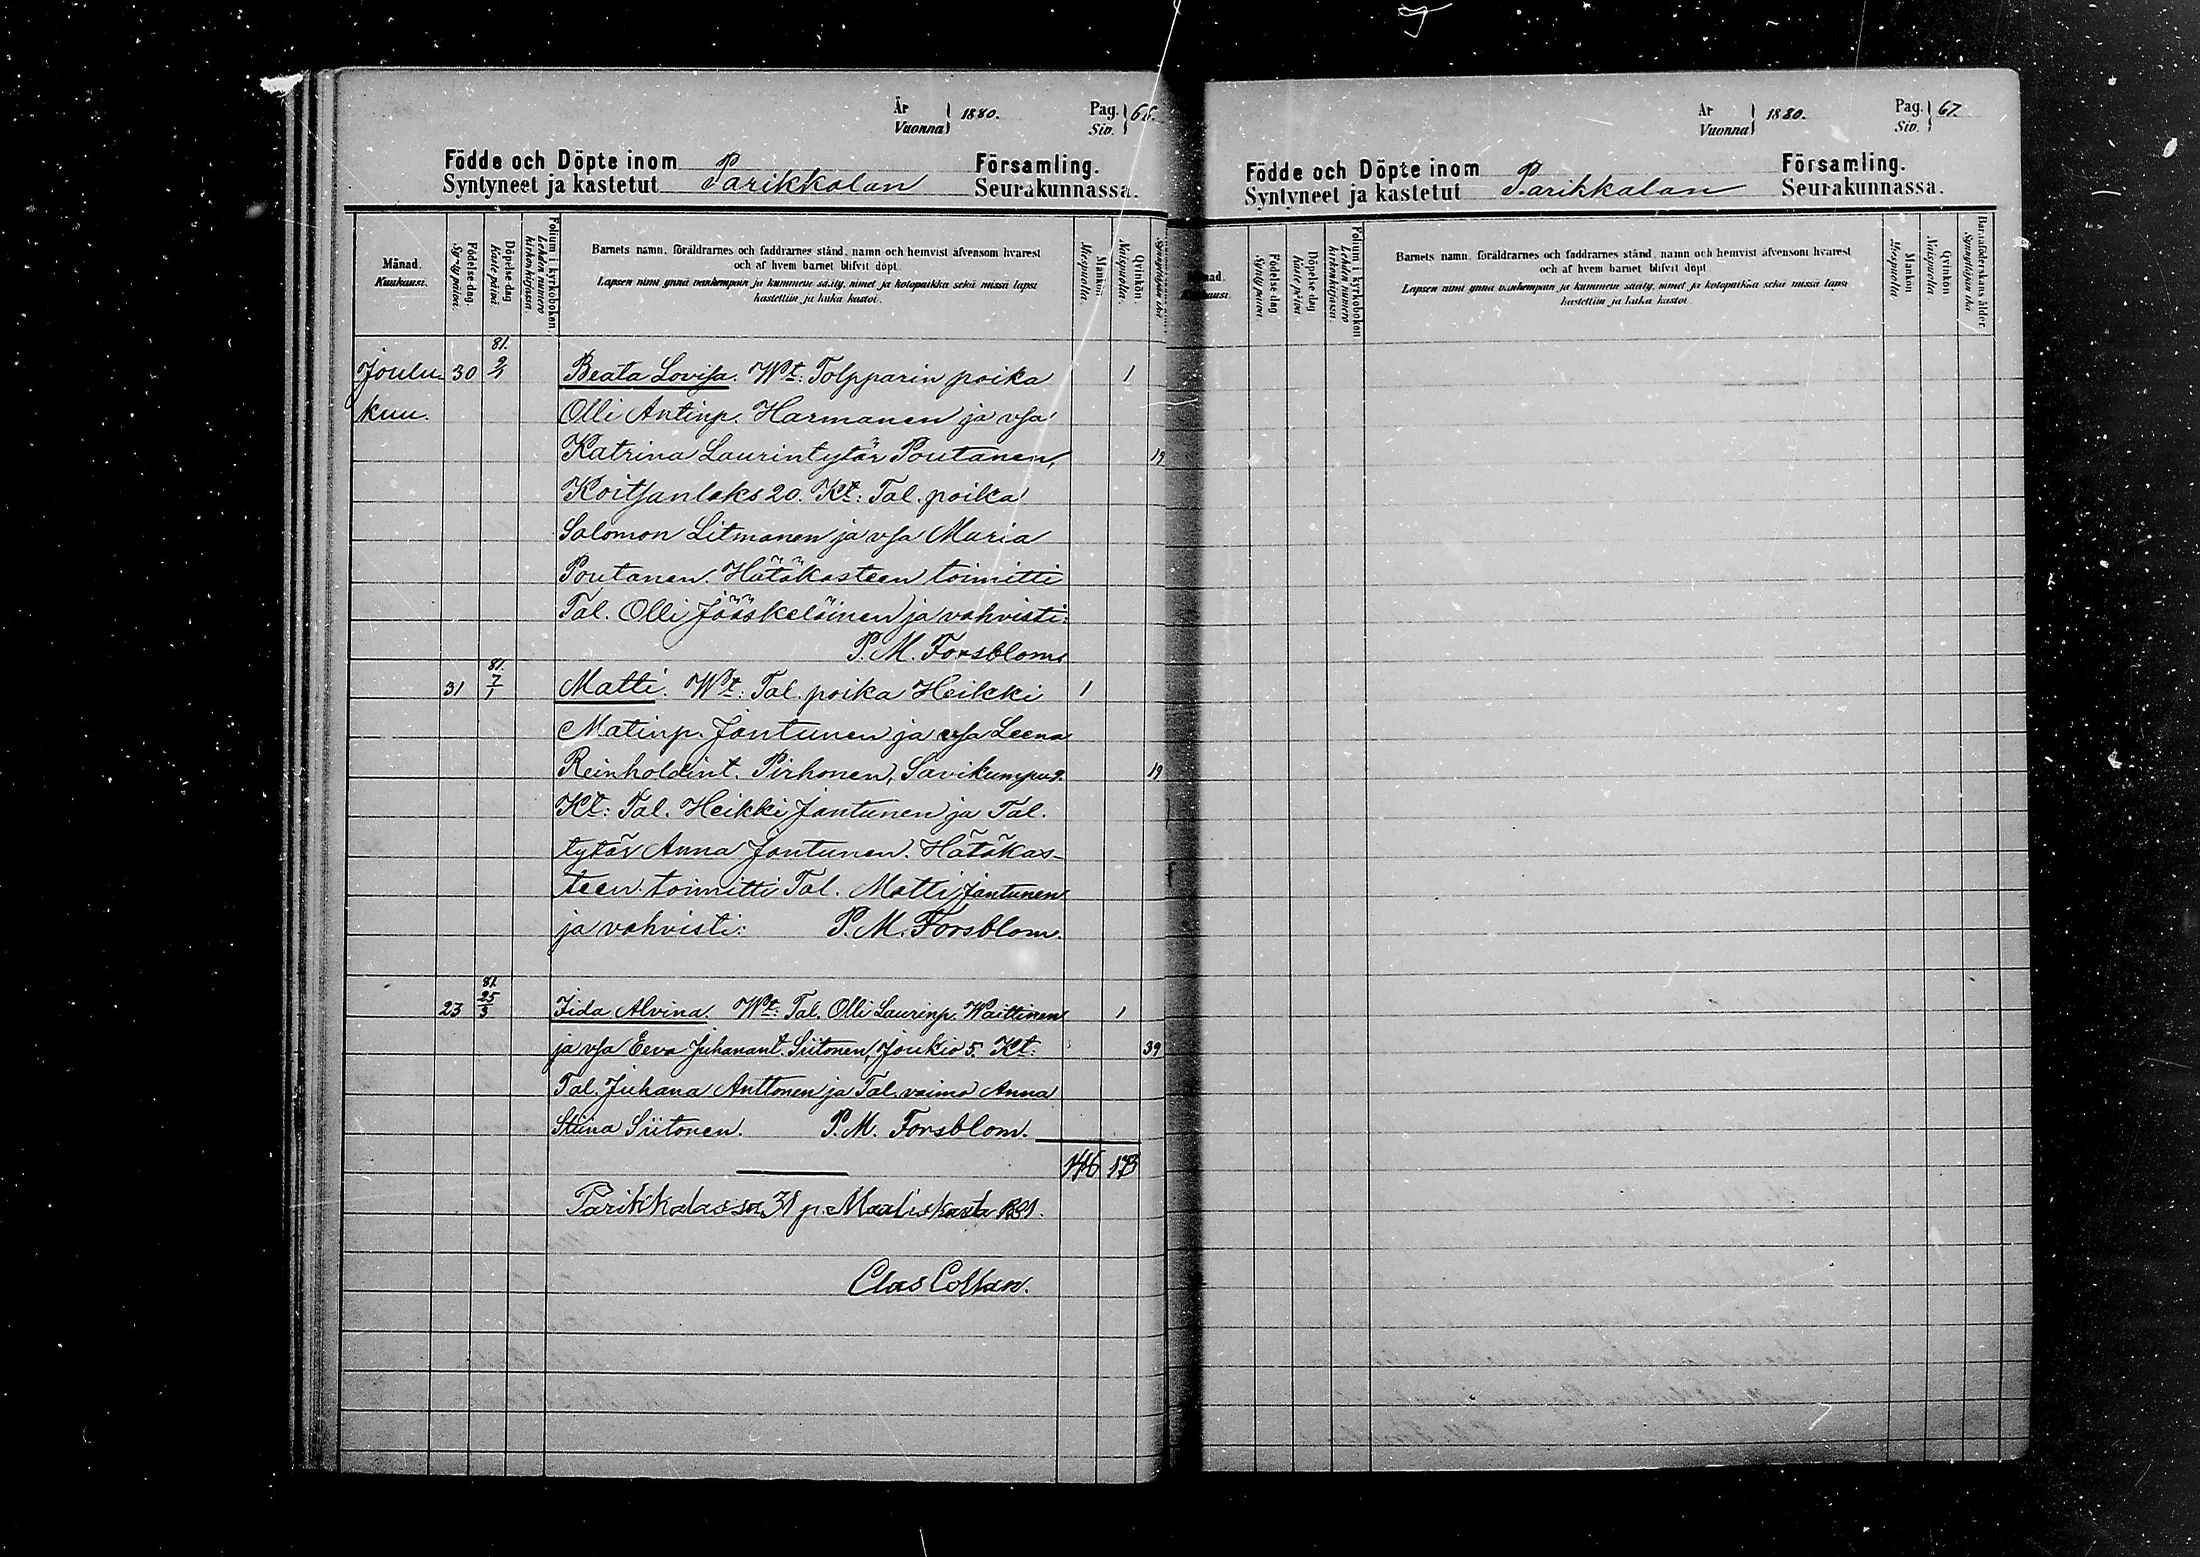 År
Vuonna } 1880.
Pag.
Siv. } 66.
Födde och Döpte inom
Syntyneet ja kastetut
Parikkalan
Församling.
Seurakunnassa.
Månad.
Kuukausi.
Födelse-dag
Synty päivä.
Döpelse-dag
Kaste päivä.
Folium i kyrkoboken
Lehden numero
kirkonkirjassa.
Barnets namn, föräldrarnes och faddrarnes stånd, namn och hemvist äfvensom hvarest
och af hvem barnet blifvit döpt.
Lapsen nimi ynnä vanhempain ja kummein sääty, nimet ja kotopaikka sekä missä lapsi
kastettiin ja kuka kastoi.
Mankön
Miespuolia.
Qvinkön
Naispuolia.
81.
Joulu- 30 2/1 Beata Lovisa. Wt: Tolpparin poika 1
kuu. Olli Antinp. Harmanen ja vsa
Katrina Laurintytär Poutanen, 19
Koitsanlaks 20. Kt: Tal. poika
Salomon Litmanen ja vsa Maria
Poutanen. Hätäkasteen toimitti
Tal. Olli Jääskeläinen ja vahvisti:
P. M. Forsblom.
81.
31 7/1 Matti. Wt: Tal. poika Heikki 1
Matinp. Jantunen ja vsa Leena
Reinholdint. Pirhonen, Savikumpu 2. 19
Kt: Tal. Heikki Jantunen ja Tal.
tytär Anna Jantunen. Hätäkas-
teen toimitti Tal. Matti Jantunen
ja vahvisti: P. M. Forsblom.
81.
23 25/3 Iida Alvina. Wt: Tal. Olli Laurinp. Waittinen 1
ja vsa Eeva Juhanant. Siitonen, Joukio 5. Kt: 39
Tal. Juhana Anttonen ja Tal. vaimo Anna
Stiina Siitonen. P. M. Forsblom.
146 173
Parikkalassa 31 p. Maaliskuuta 1881.
Clas Collan.
År
Vuonna } 1880.
Pag.
Siv. } 67.
Födde och Döpte inom
Syntyneet ja kastetut
Parikkalan
Församling.
Seurakunnassa.
Födelse-dag
Synty päivä
Döpelse-dag
Kaste päivä.
Folium i kyrkoboken
Lehden numero
kirkonkirjassa.
Barnets namn, föräldrarnes och faddrarnes stånd, namn och hemvist äfvensom hvarest
och af hvem barnet blifvit döpt.
Lapsen nimi ynnä vanhempain ja kummein sääty, nimet ja kotopaikka sekä missä lapsi
kastettiin ja kuka kastoi.
Mankön
Miespuolia
Qvinkön
Naispuolia.
Barnaföderskans ålder.
Synnyttäjän ikä